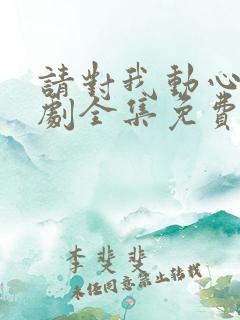 請對我動心
劇全集免費
李斐斐
未经同意禁止转载